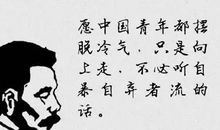 愿中国青年都摆
脱冷气，只是向
上走，不必听自
暴自弃者流的
话。